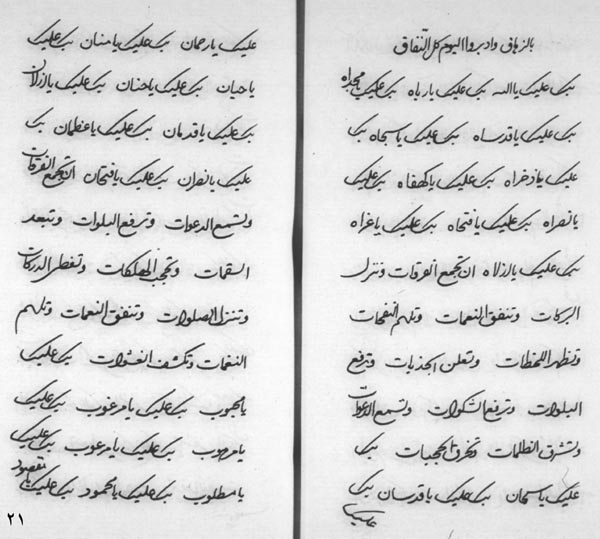 بالزهاق وادبروا اليوم كل النفاق
بك عليك يا الله بك عليك يا رباه بك عليك يا مجداه
بك عليك يا قدساه بك عليك يا سبحاه بك
عليك يا ذخراه بك عليك يا كهفاه بك عليك
يا نصراه بك عليك يا فتحاه بك عليك يا عزاه
بك عليك يا ازلاه ان تجمع الفرقات وتنزل
البركات وتنفق النعمات وتلهم النفحات
وتظهر اللحظات وتعلن الجذبات وترفع
البلوات وترفع الشكوات وتسمع الدعوات
وتشرق الظلمات وتخرق الحجبات بك
عليك يا سبحان بك عليك يا قدسان بك
عليك
عليك يا رحمان بك عليك يا منان بك عليك
يا حيان بك عليك يا حنان بك عليك يا ازلان
بك عليك يا قدمان بك عليك يا عظمان بك
عليك يا نصران بك عليك يا فتحان ان تجمع الفرقات
وتسمع الدعوات وترفع البلوات وتبعد
النقمات وتحجب المهلكات وتغطي الدركات
وتنزل الصلوات وتنفق النعمات وتلهم
النغمات وتكشف الغشوات بك عليك
يا محبوب بك عليك يا مرغوب بك عليك
يا مرهوب بك عليك يا مرعوب بك عليك
يا مطلوب بك عليك يا محمود بك عليك يا مقصود
٢١